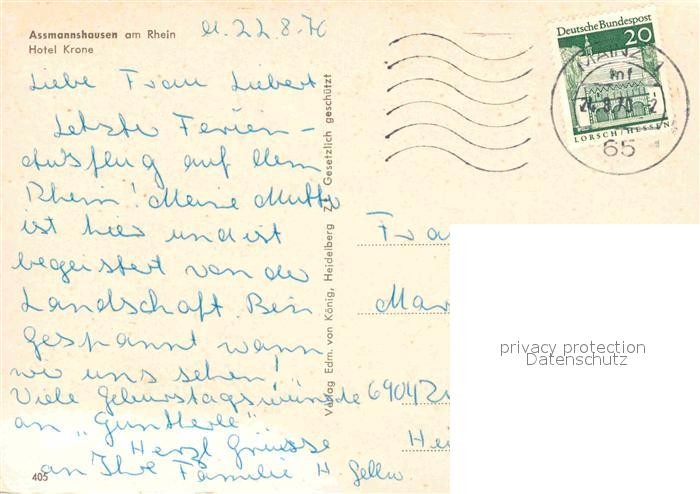 Assmannshausen am Rhein
Hotel Krone
22.8.70
Liebe Frau Liebert
Letzter Ferien-
ausflug auf dem
Rhein! Meine Mutter
ist hier und ist
begeistert von der
Landschaft. Bin
gespannt wann
wir uns sehen!
Viele Geburtstagswünsche
an "Günterle".
Herzl Grüsse
an Ihre Familie H.
405
Verlag Edm. von König, Heidelberg Gesetzlich geschützt
Deutsche Bundespost
20
LORSCH/HESSEN
MAINZ 1
24.8.70
65
Fra
Mar
6904
Hei
privacy protection
Datenschutz